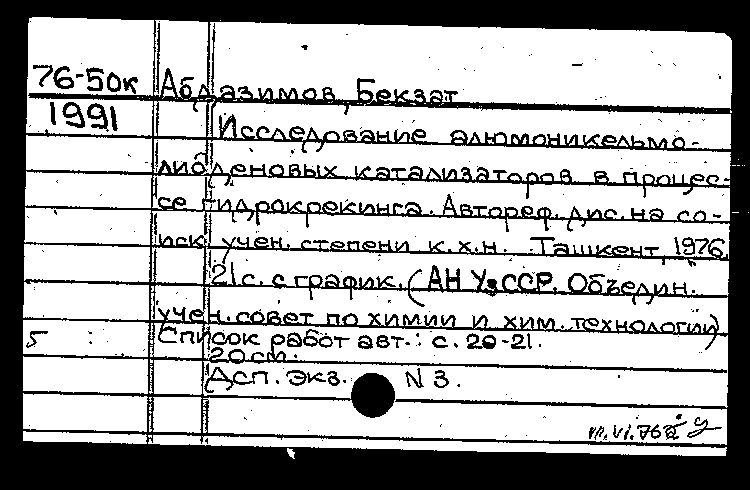 76-50к Абдазимов, Бекзат
1991
Исследование алюмоникельмо-
либденовых катализаторов в процес-
се гидрокрекинга. Автореф. дис. на со-
иск. учен. степени к.х.н. Ташкент, 1976.
21с. с график. (АН УзССР. Объедин.
учен. совет по химии и хим. технологии)
5 : Список работ авт.: с. 20-21.
20 cm.
Дсп. экз. N 3.